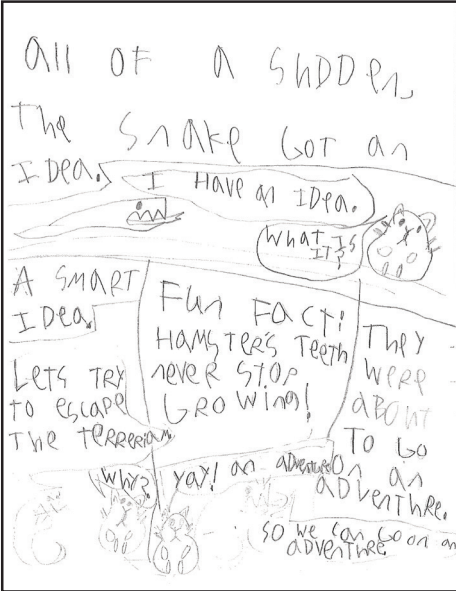 All OF A SUDDEN,
The SnAke GoT An
IDea.
I HAVE an IDea.
What IS
IT?
A SMART
IDea.
LeTS TRY
To escape
The TeRReRiam
Fun FacT:
HAMSTER'S TeeTh
never STop
GROWING!
They
WeRe
aBOUT
To Go
On an
ADVenThRe.
Why?
yay! an aDvenThre
So we can Go on an
ADVenThRe